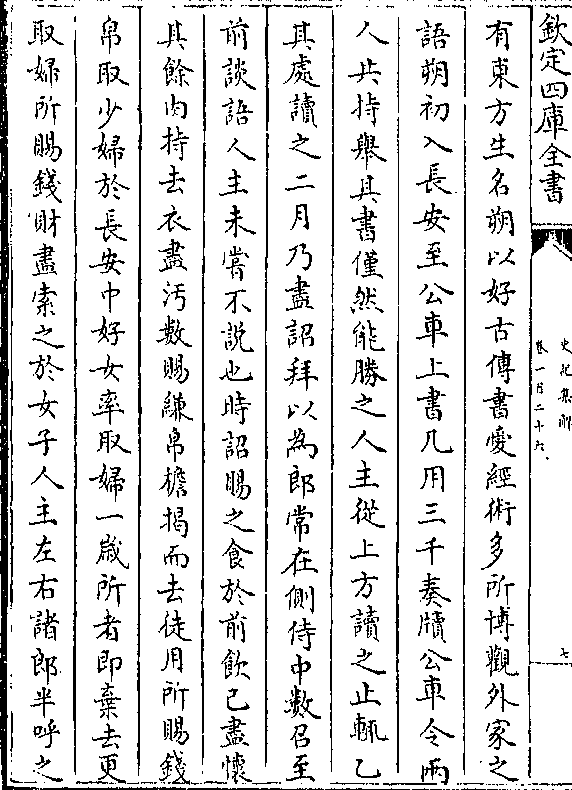 欽定四庫全書
史記集解
卷一百二十六
七
有東方生名朔以好古傳書愛經術多所博觀外家之
語朔初入長安至公車上書凡用三千奏牘公車令兩
人共持舉其書僅然能勝之人主從上方讀之止輒乙
其處讀之二月乃盡詔拜以為郎常在側侍中數召至
前談語人主未嘗不說也時詔賜之食於前飲已盡懷
其餘肉持去衣盡汚數賜縑帛檐揭而去徒用所賜錢
帛取少婦於長安中好女率取婦一嵗所者即棄去更
取婦所賜錢財盡索之於女子人主左右諸郎半呼之